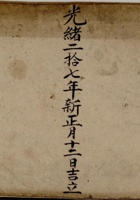 光緒二拾七年新正月十二日吉立